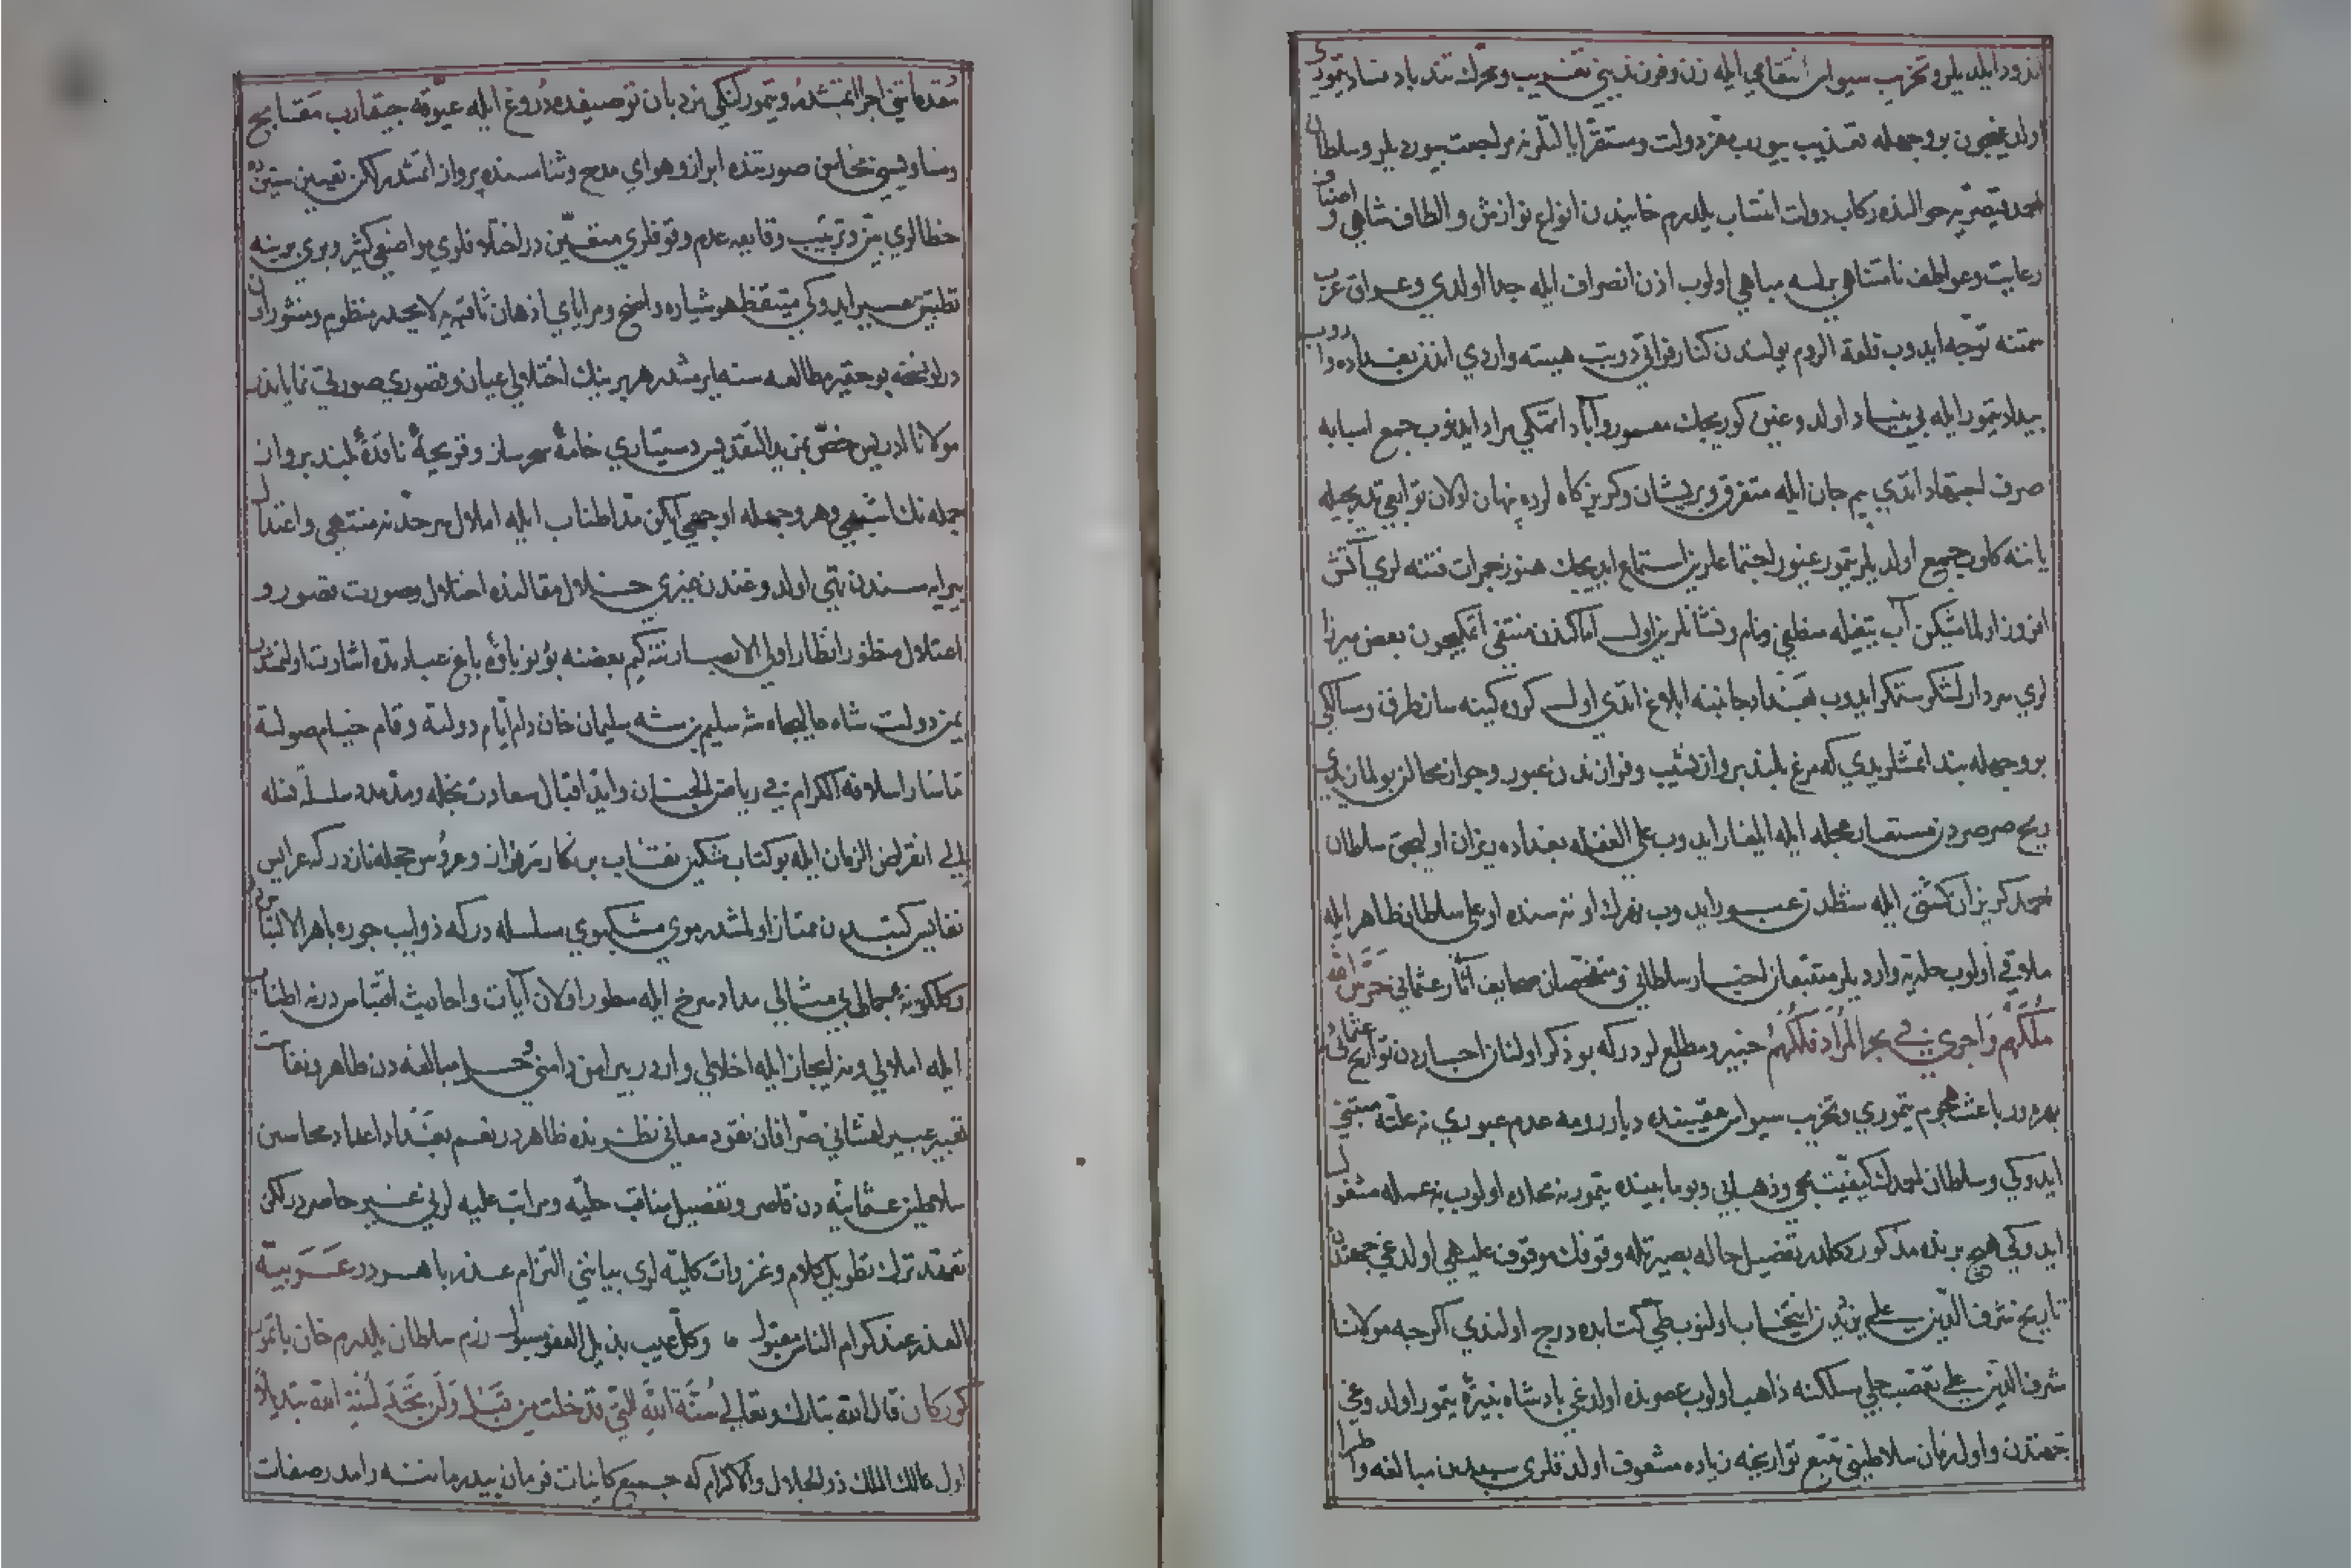 اولدیغیچون بر وجهله تعذیب بیورب مقر دولت ومستقر ایالتلرینه مراجعت بیوردیلر وسلطان
احمد قیصریه حوالسنده رکاب دولت انتساب یلدرم خانیدن انواع نوازش والطاف شاهی واصناف
رعایت وعواطف نامتناهی برله مباهی اولوب اذن انصراف ایله جدا اولدی وعراق عرب
سمتنه توجه ایدوب قلعة الروم یولندن کنار فراتی دوتب هیته واردی اندن بغداده واروب
بیداد تیمور ایله بی بنیاد اولدوغین کوریجك معمور وآباد اتمکی مراد ایدنوب جمع اسبابه
صرف اجتهاد اتدی بیم جان ایله متفرق وپریشان وکریزکاه لرده پنهان اولان توابعی تدریجله
یاننه کلوب جمع اولدیلر تیمور غیور اجتماعلرین استماع ایدیجك هنوز جمرات فتنه لری آتش
افروز اولمامشیکن آب تیغله منطفی ونام ونشانلرین اول اماکندن منتفی اتمکیچون بعض میرزا
لری سردار لشکر ستمکر ایدوب بغداد جانبنه ابلاغ اتدی اول کروه کینه ساز طرق ومسالکی
بر وجهله بند اتمشلریدی که مرغ بلند پرواز نشیب وفرازندن عبور وجواز مجالن بولمازیدی
ریح صرصردن مستعار عجله ایله ایلغار ایدوب علی الغفله بغداده ریزان اولیجق سلطان
احمد کریزان کشتی ایله شطدن عبور ایدوب بفرك اوته سنده اوغلی سلطان طاهر ایله
ملاقی اولوب حلیه واردیلر متتبعان اخبار سلطانی ومتفحصان صحایف آثار عثمانی حرس الله
ملكهم واجری فی بحر المراد فلكهم خبیر ومطلع لردر که بو ذکر اولنان اخباردن تواریخ عثمانی
بهره ور باعث هجوم تیموری وتخریب سیواس عقیبنده دیار رومه عدم عبوری نه علته مبتنی
ایدوکی وسلطان احمدك کیفیت مجی وذهابی وبو مابینده تیمور نه محلده اولوب نه عمله مشغول
ایدوکی هیچ برنده مذکور دکلدر تفصیل حاله بصیرتله وقوفك موقوف علیهی اولدغی جهتدن
تاریخ شرف الدین علی یزدیدن انتخاب اولنوب طی کتابده درج اولندی اکرچه مولانا
شرف الدین علی تعصب جبلی مسلکنه ذاهب اولوب عصرنده اولدغی پادشاه نبیرۀ تیمور اولدوغی
جهتدن واول زمان سلاطینی تتبع تواریخه زیاده مشعوف اولدقلری سببدن مبالغه واطرا
مقدماتنی اجرا اتمشدر وتیمور لنکی نردبان توصیفده دروغ ایله عیوقه چیقارب مقابح
ومساویسی محاسن صورتنده ابراز وهوای مدح وثناسنده پرواز اتمشدر لکن تعیین سنینده
خطالری بین وترتیب وقایعه عدم وقوفلری متعین در اختلافلری مواضعی کثیر وبری برینه
تطبیق عسیر ایدوکی متیقظ هوشیاره واضح ومرایای اذهان ثاقبه یه لایحدر منظوم ومنثور اون
درلو نسخه بو حقیر مطالعه سنه ایرمشدر هر برینك اختلافی عیان وقصوری صورتی نمایاندر
مولانا ادریس خص بمزید التقدیس دستیاری خامۀ سحرساز وقریحۀ ناقدۀ بلند پرواز
جمله نك اشبهی وهر وجهله اوجهی لکن مد اطناب ایله املال سرحدنه منتهی واعتدال
پیرایه سندن تهی اولدوغندن غیری خلال مقالنده اختلال وصورت قصور و
اعتلال منظور انظار اولی الابصار نته کیم بعضنه بو نوباوۀ باغ عباده اشارت اولنمشدر
یمن دولت شاه عالیجاه شه سلیم بن شه سلیمان خان دام ایام دولته وقام خیام صولته
ما سار اسلافه الکرام فی ریاض الجنان واید اقبال سعادت نجله ومد مدد سلسلۀ نسله
الی انقراض الزمان ایله بو کتاب مشکین نقاب بر نکار سرفراز وعروس حجله نازدر که عرایس
نفایس کتبدن ممتاز اولمشدر موی مشکبوی مسلسله در که ذوایب حوره باهر الالتباس
وکلکونه جمالی بی مثالی مداد سرخ ایله سطور اولان آیات واحادیث اقتباس در نه اطناب
ایله املالی ونه ایجاز ایله اخلالی واردر پیرامن دامنی خس مبالغه دن طاهر ونفحات
تعبیر عبیر افشانی صرافان نقود معانی نظرنده ظاهر در رقم تعداد اعداد محاسن
سلاطین عثمانیه دن قاصر وتفصیل مناقب جلیه ومراتب علیه لری غیر حاصر در لکن
تعمد ترك تطویل کلام وغزوات کلیه لری بیاننی التزام عذر باهر در عربیه
العذر عند کرام الناس مقبول ٥ وکل عیب بذیل العفو مسبول رزم سلطان یلدرم خان با تیمور
کورکان قال الله تبارك وتعالی سنة الله التی قد خلت من قبل ولن تجد لسنة الله تبدیلا
اول مالك الملك ذو الجلال والاکرام که جمیع کاینات فرمان بیدرماننه رامدر صفات